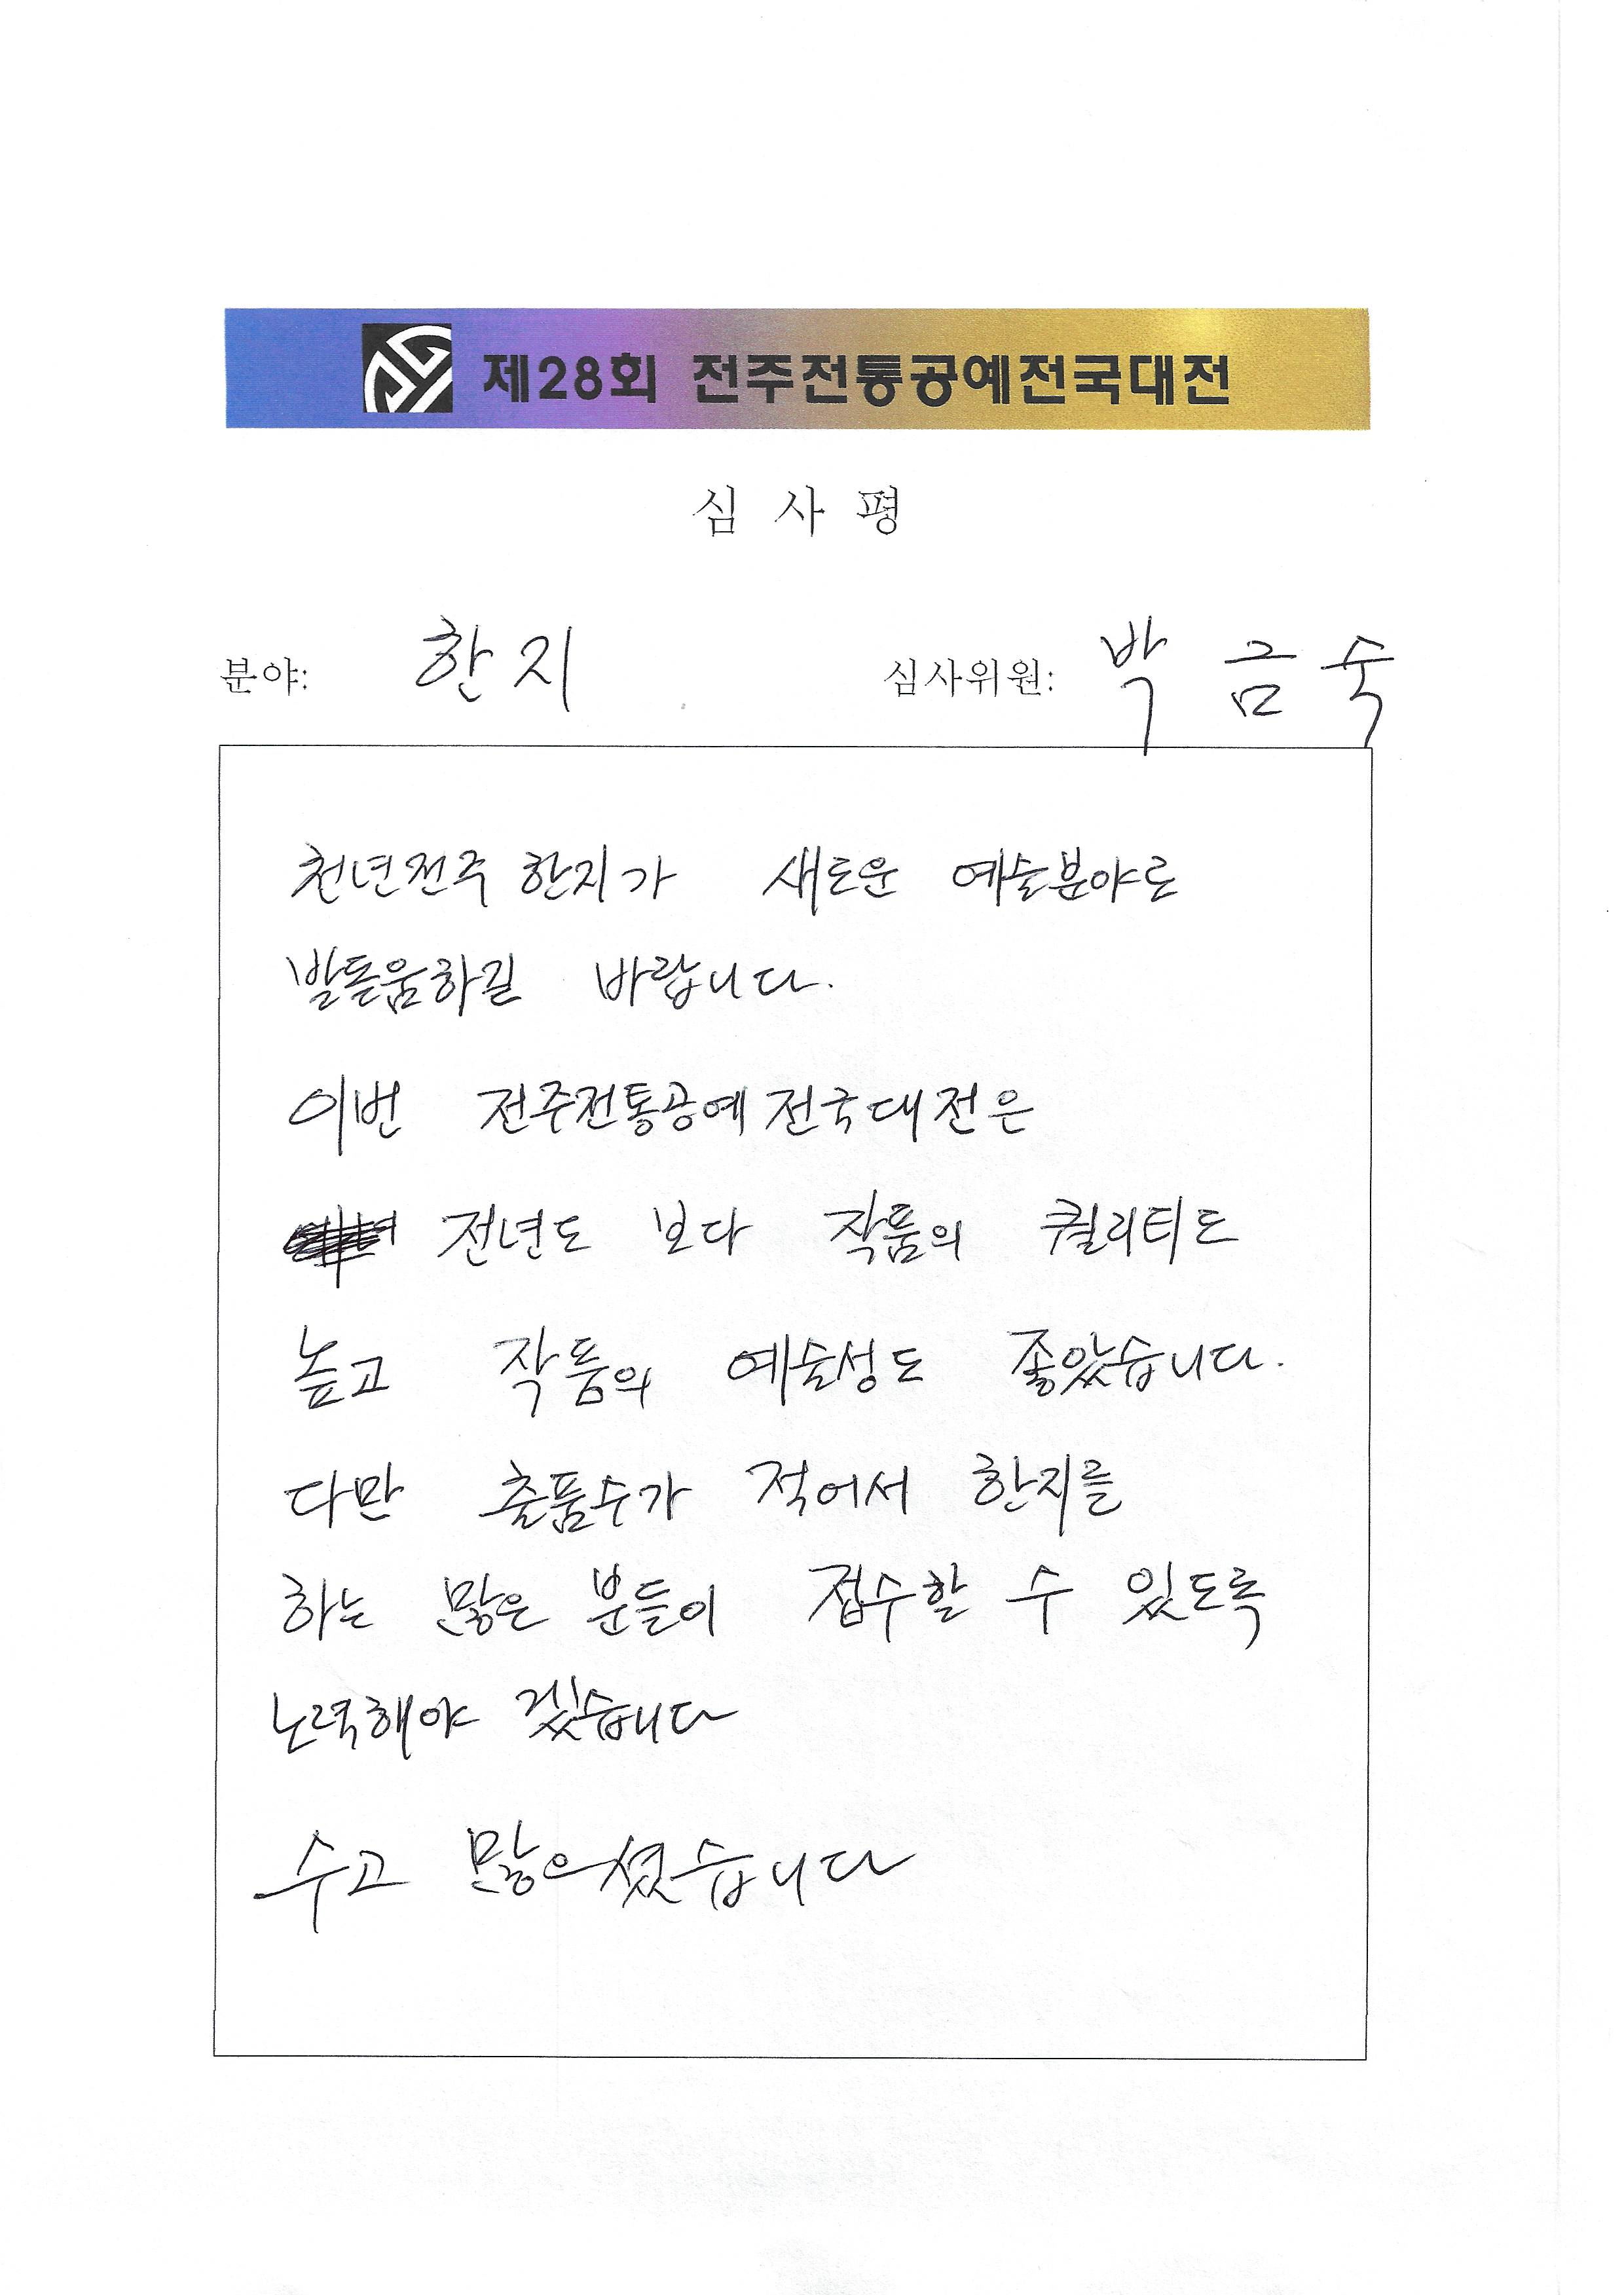 제28회 전주전통공예전국대전
심 사 평
분야: 한지 심사위원: 박금숙
천년전주 한지가 새로운 예술분야로
발돋움하길 바랍니다.
이번 전주전통공예전국대전은
전년도 보다 작품의 퀄리티도
높고 작품의 예술성도 좋았습니다.
다만 출품수가 적어서 한지를
하는 많은 분들이 접수할 수 있도록
노력해야 겠습니다
수고 많으셨습니다